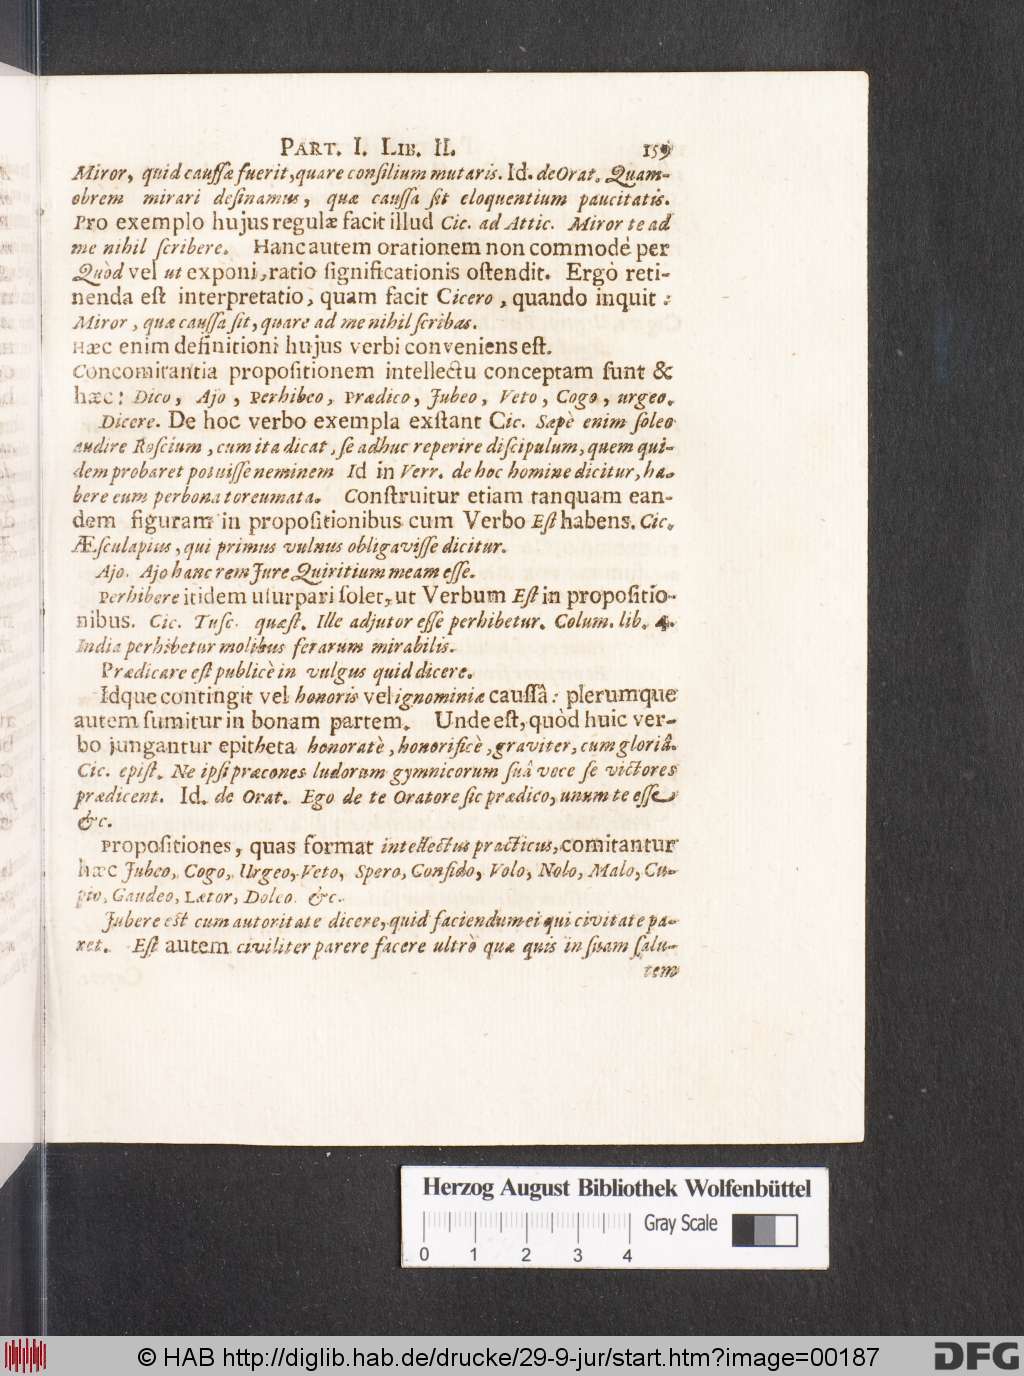 PART. I. LIB. II. 159
Miror, quid caussæ fuerit, quare consilium mutaris. Id. de Orat. Quam-
obrem mirari desinamus, quæ caussa sit eloquentium paucitatis.
Pro exemplo hujus regulæ facit illud Cic. ad Attic. Miror te ad
me nihil scribere. Hanc autem orationem non commodè per
Quòd vel ut exponi, ratio significationis ostendit. Ergò reti-
nenda est interpretatio, quam facit Cicero, quando inquit:
Miror, quæ caussa sit, quare ad me nihil scribas.
Hæc enim definitioni hujus verbi conveniens est.
Concomitantia propositionem intellectu conceptam sunt &
hæc: Dico, Ajo, Perhibeo, Prædico, Jubeo, Veto, Cogo, urgeo.
Dicere. De hoc verbo exempla exstant Cic. Sæpè enim soleo
audire Roscium, cum ita dicat, se adhuc reperire discipulum, quem qui-
dem probaret potuisse neminem Id in Verr. de hoc homine dicitur, ha-
bere eum perbona toreumata. Construitur etiam tanquam ean-
dem figuram in propositionibus cum Verbo Est habens. Cic.
Æsculapius, qui primus vulnus obligavisse dicitur.
Ajo. Ajo hanc rem Jure Quiritium meam esse.
Perhibere itidem usurpari solet, ut Verbum Est in propositio-
nibus. Cic. Tusc. quæst. Ille adjutor esse perhibetur. Colum. lib. 4.
India perhibetur molibus ferarum mirabilis.
Prædicare est publicè in vulgus quid dicere.
Idque contingit vel honoris vel ignominiæ caussâ: plerumque
autem sumitur in bonam partem. Unde est, quòd huic ver-
bo jungantur epitheta honoratè, honorificè, graviter, cum gloriâ.
Cic. epist. Ne ipsi præcones ludorum gymnicorum suâ voce se victores
prædicent. Id. de Orat. Ego de te Oratore sic prædico, unum te esse
&c.
Propositiones, quas format intellectus practicus, comitantur
hæc Jubeo, Cogo, Urgeo, Veto, Spero, Confido, Volo, Nolo, Malo, Cu-
pio, Gaudeo, Lætor, Doleo. &c.
Jubere est cum autoritate dicere, quid faciendum ei qui civitate pa-
ret. Est autem civiliter parere facere ultrò quæ quis in suam salu-
tem
Herzog August Bibliothek Wolfenbüttel
Gray Scale
0 1 2 3 4
© HAB http://diglib.hab.de/drucke/29-9-jur/start.htm?image=00187
DFG